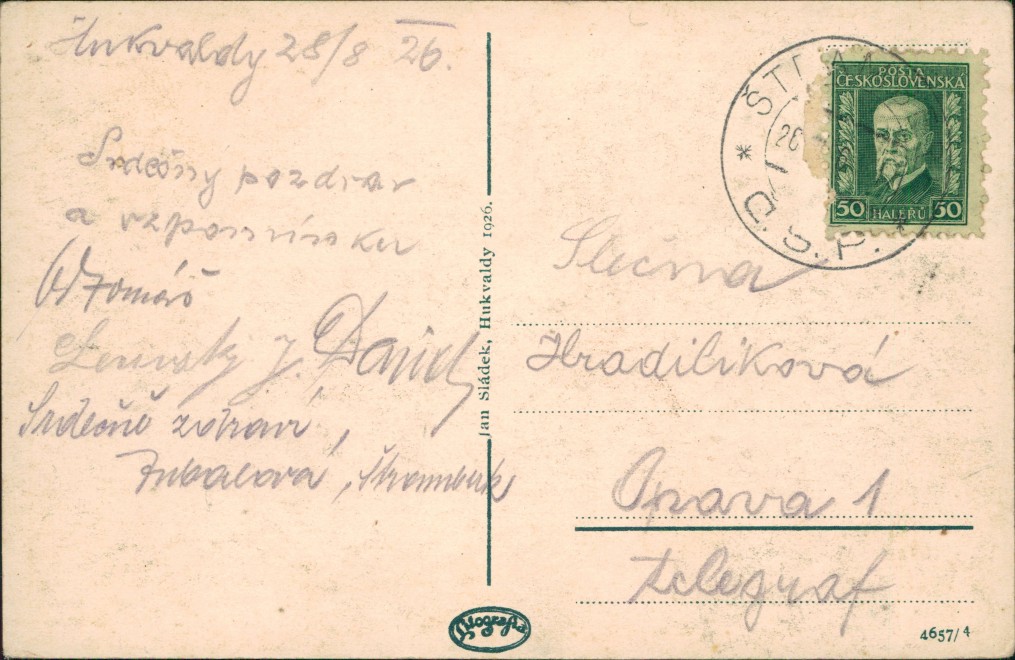 Hukvaldy 28/8 26.
Srdečný pozdrav
a vzpomínku
Od Tomáš
J. Daniel
Srdečně zdraví,
Kubalová, Štramberk
Jan Sládek, Hukvaldy 1926.
POŠTA
ČESKOSLOVENSKÁ
50 HALÉŘŮ 50
Slečna
Hradiliková
Opava 1
telegraf
4657/4